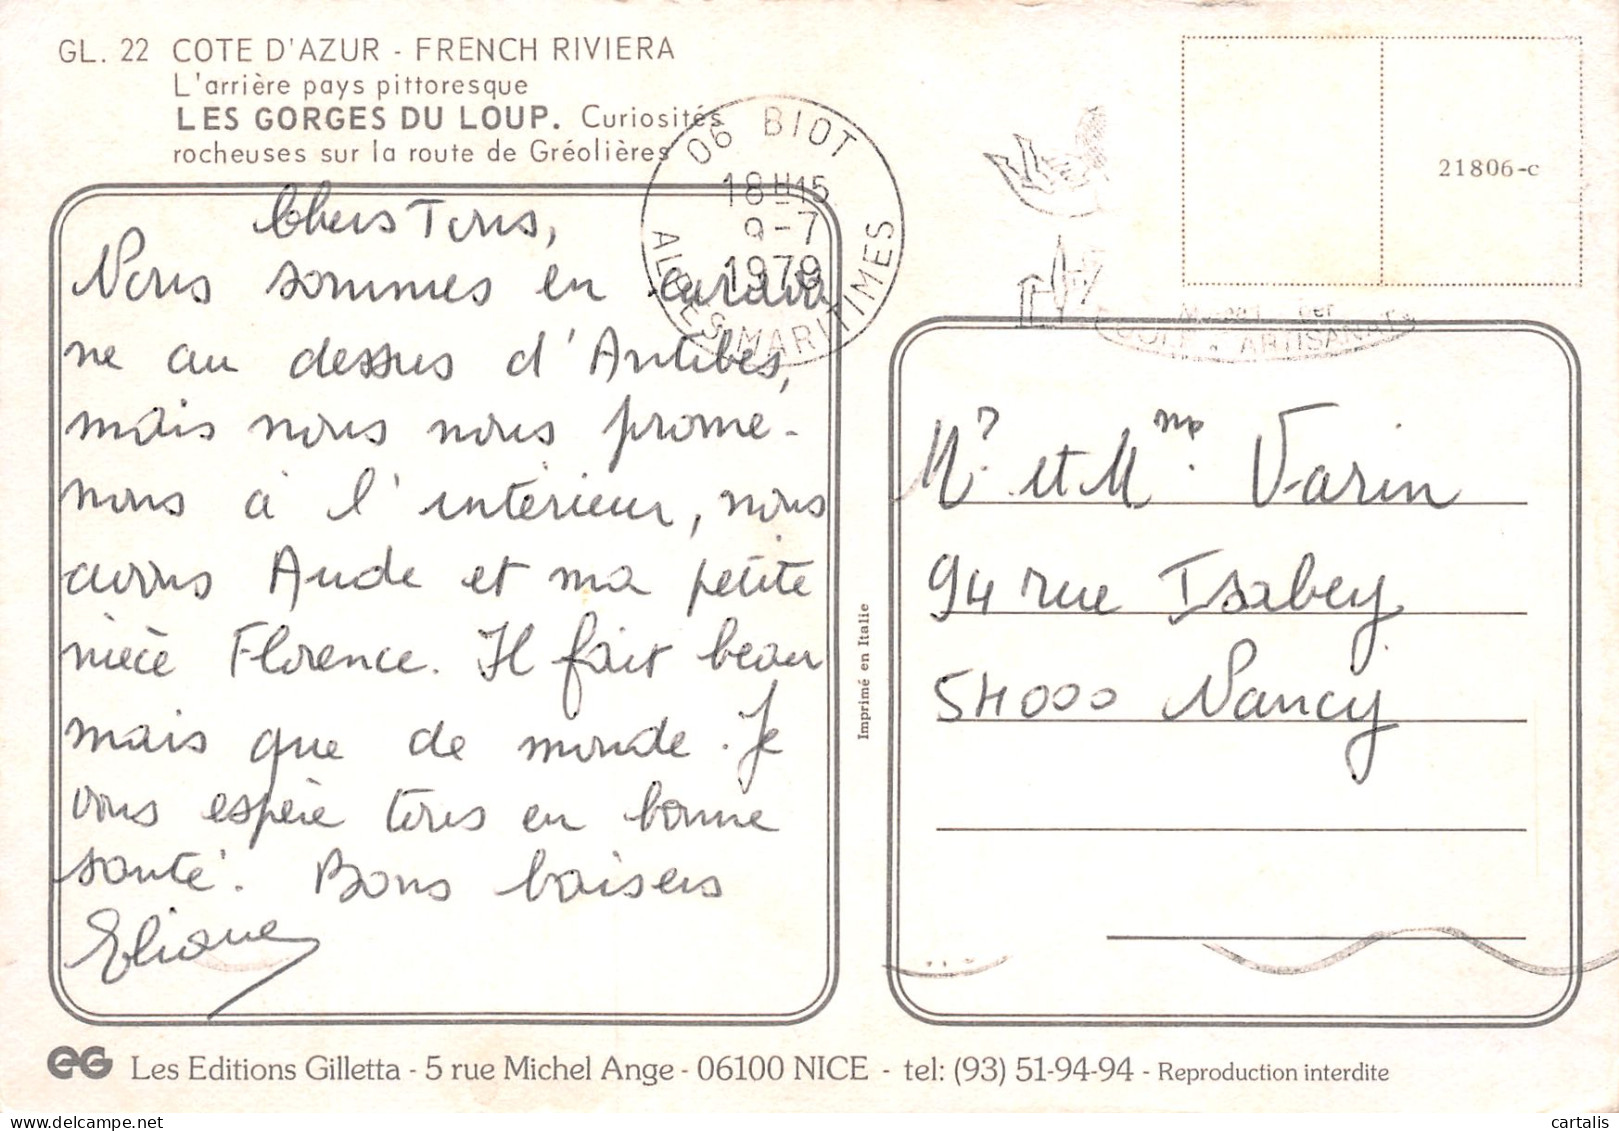 GL. 22 COTE D'AZUR - FRENCH RIVIERA
L'arrière pays pittoresque
LES GORGES DU LOUP. Curiosités
rocheuses sur la route de Gréolières
06 BIOT
18H15
9-7
1979
ALPES-MARITIMES
21806-c
ARTISANAT
Chers Tous,
Nous sommes en carava
ne au dessus d'Antibes,
mais nous nous prome-
nons à l'intérieur, nous
avons Aude et ma petite
nièce Florence. Il fait beau
mais que de monde. Je
vous espère tous en bonne
santé. Bons baisers
Eliane
Imprimé en Italie
Mr et Mme Varin
94 rue Isabey
54000 Nancy
EG Les Editions Gilletta - 5 rue Michel Ange - 06100 NICE - tel: (93) 51-94-94 - Reproduction interdite
cartalis